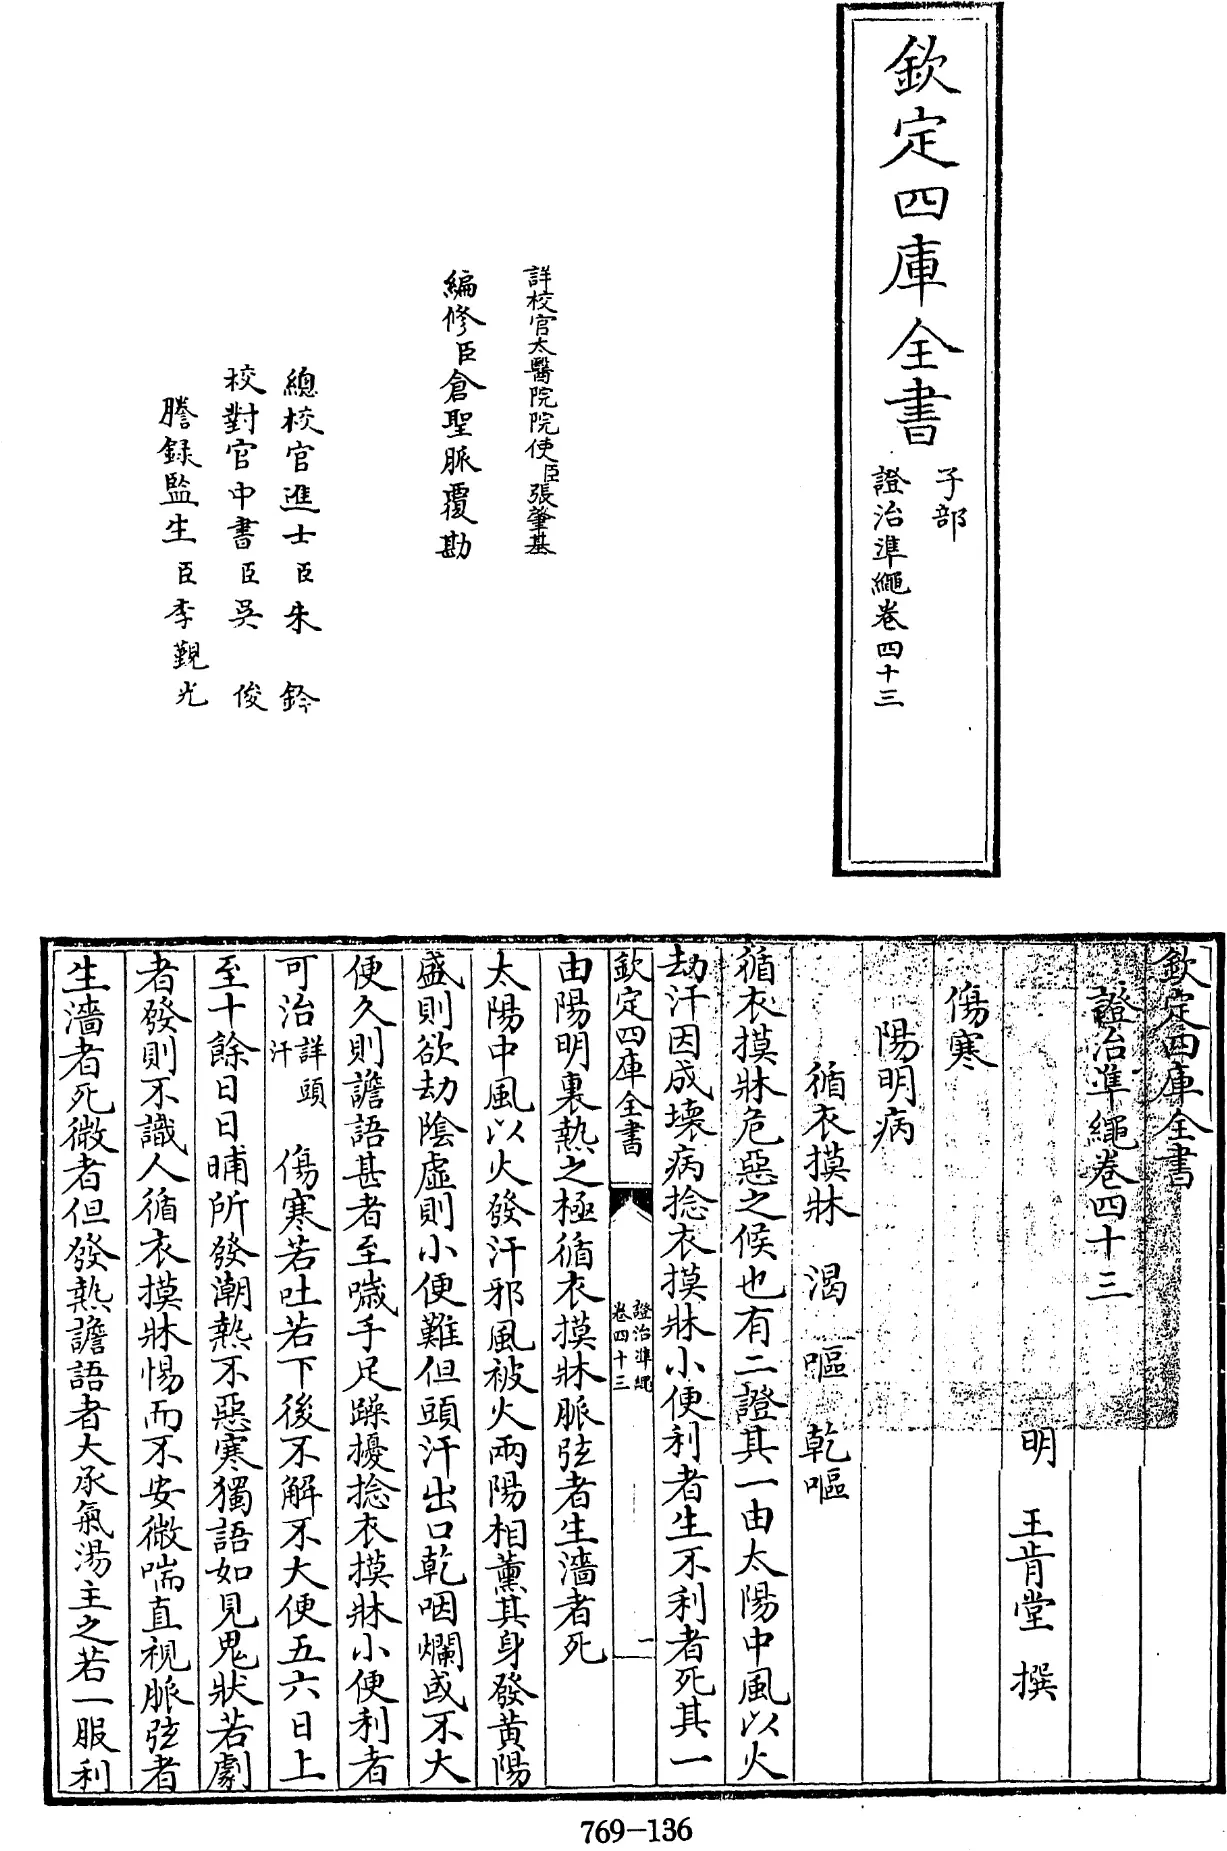 欽定四庫全書
子部
證治準繩卷四十三
詳校官太醫院院使臣張肇基
編修臣倉聖脈覆勘
總校官進士臣朱鈐
校對官中書臣吳俊
謄錄監生臣李觀光
欽定四庫全書
證治準繩卷四十三
明 王肯堂 撰
傷寒
陽明病
循衣摸牀 渴 嘔 乾嘔
循衣摸牀危惡之候也有二證其一由太陽中風以火
劫汗因成壞病捻衣摸牀小便利者生不利者死其一
欽定四庫全書
證治準繩
卷四十三
一
由陽明裏熱之極循衣摸牀脈弦者生濇者死
太陽中風以火發汗邪風被火兩陽相薰其身發黃陽
盛則欲劫陰虛則小便難但頭汗出口乾咽爛或不大
便久則譫語甚者至噦手足躁擾捻衣摸牀小便利者
可治詳頭汗 傷寒若吐若下後不解不大便五六日上
至十餘日日晡所發潮熱不惡寒獨語如見鬼狀若劇
者發則不識人循衣摸牀惕而不安微喘直視脈弦者
生濇者死微者但發熱譫語者大承氣湯主之若一服利
769-136